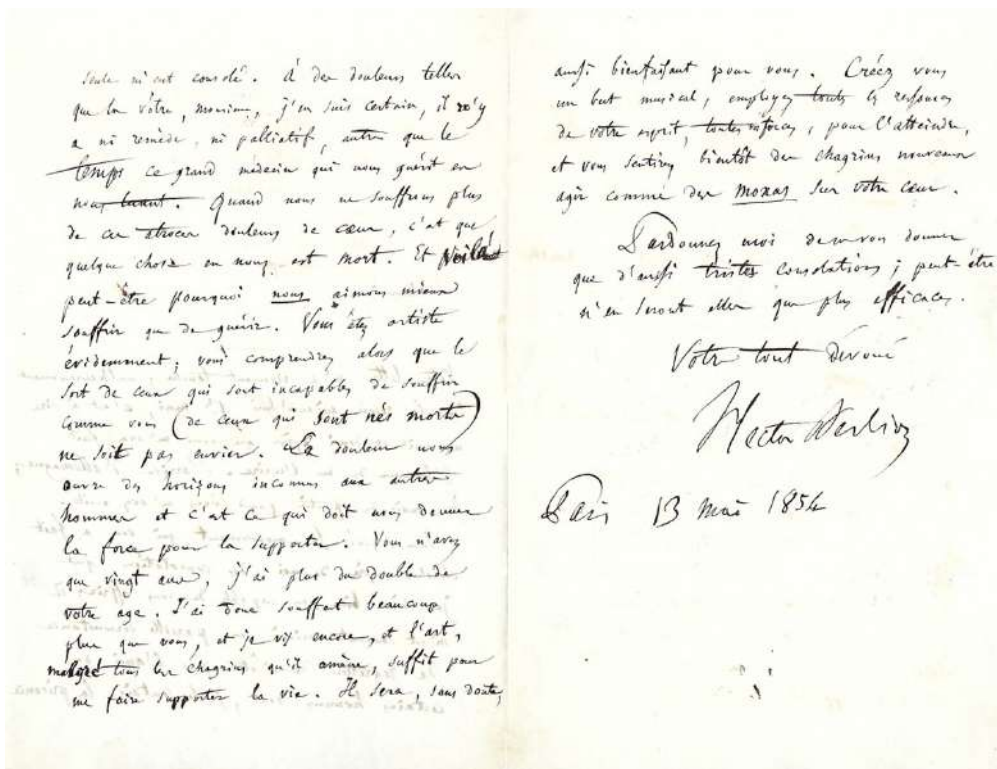 seule m'ont consolé. À des douleurs telles
que la vôtre, monsieur, j'en suis certain, il n'y
a ni remède, ni palliatif, autre que le
temps ce grand médecin qui nous guérit en
nous tuant. Quand nous ne souffrons plus
de ces atroces douleurs de cœur, c'est que
quelque chose en nous est mort. Et voilà
peut-être pourquoi nous aimons mieux
souffrir que de guérir. Vous êtes artiste
évidemment; vous comprendrez alors que le
sort de ceux qui sont incapables de souffrir
comme vous (de ceux qui sont nés morts)
ne soit pas envier. La douleur nous
ouvre des horizons inconnus aux autres
hommes et c'est ce qui doit nous donner
la force pour la supporter. Vous n'avez
que vingt ans, j'ai plus du double de
votre age. J'ai donc souffert beaucoup
plus que vous, et je vis encore, et l'art,
malgré tous les chagrins qu'il amène, suffit pour
me faire supporter la vie. Il sera, sans doute,
aussi bienfaisant pour vous. Créez vous
un but musical, employez toutes les ressources
de votre esprit, toutes vos forces, pour l'atteindre,
et vous sentirez bientôt des chagrins nouveaux
agir comme des moxas sur votre cœur.
Pardonnez moi de ne vous donner
que d'aussi tristes consolations; peut-être
n'en seront elles que plus efficaces.
Votre tout dévoué
Hector Berlioz
Paris 13 mai 1854